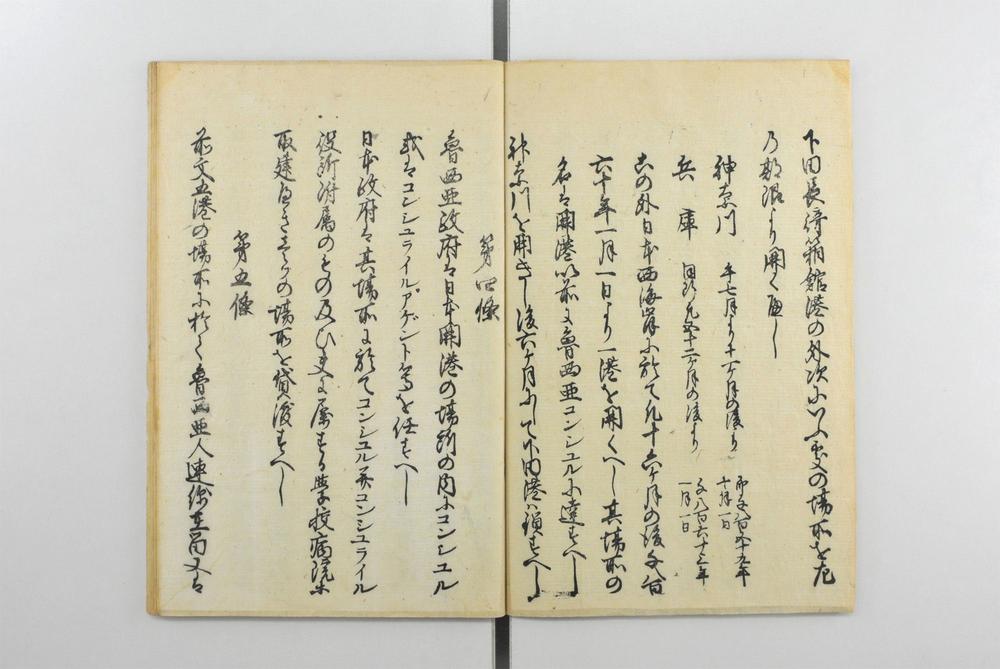 下田長崎箱館港の外次にいふ所の場所を左
の期限より開くへし
神奈川 午七月より十二ヶ月の後より
即千八百五十九年
七月一日
兵庫 同断凡五十二ヶ月の後より
千八百六十三年
一月一日
右の外日本西海岸に於て凡十六ヶ月の後千八百
六十年一月一日より一港を開くへし其場所の
名は開港以前に魯西亜コンシュルに達すへし
神奈川を開きし後六ヶ月にして下田港は鎖すへし
第四條
魯西亜政府は日本開港の場所の内にコンシュル
或はコンシュライルアゲント等を任すへし
日本政府は其場所に於てコンシュル并コンシュライル
役所附属のもの及ひ是に属する学校病院等
取建へき為の場所を貸渡すへし
第五條
前文五港の場所に於て魯西亜人連綿在留又は